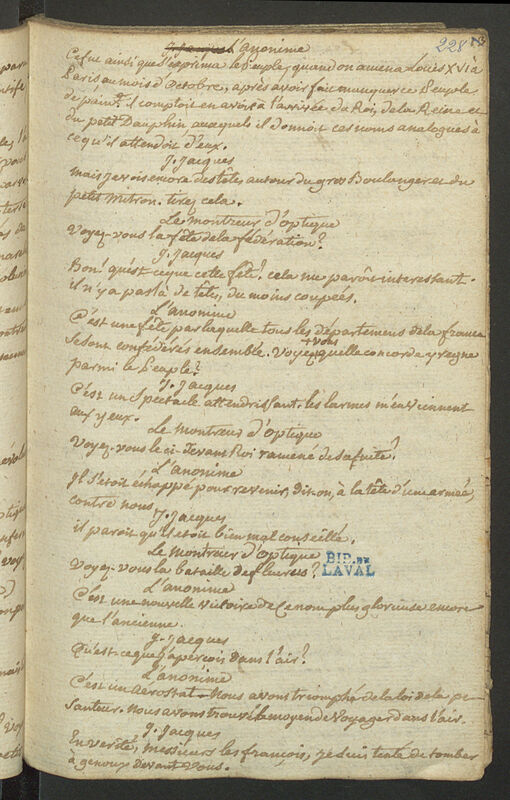 228
J. Jacques L'anonime
C'est ainsi que s'exprima le Peuple, quand on amena Louis XVI à
Paris au mois d'octobre, après avoir fait manquer ce Peuple
de pain. il comptoit en avoir à l'arrivée du Roi, de la Reine et
du petit Dauphin auxquels il donnoit ces noms analogues à
ce qu'il attendoit d'eux.
J. Jacques
mais je vois encore des têtes autour du gros Boulanger et du
petit mitron. tirez cela.
Le montreur d'optique
Voyez-vous la fête de la fédération?
J. Jacques
Bon! qu'est ce que cette fête? cela me paroît interessant.
il n'y a pas là de têtes, du moins coupées.
L'anonime
C'est une fête par laquelle tous les départemens de la france
se sont confédérés ensemble. Voyez
+ vous
quelle concorde y regne
parmi le Peuple?
J. Jacques
C'est un Spectacle attendrissant. les larmes m'en viennent
aux yeux.
Le montreur d'optique
Voyez-vous le ci-devant Roi ramené de sa fuite?
L'anonime
Il s'étoit échappé pour revenir, dit-on, à la tête d'une armée,
contre nous.
J. Jacques
il paroit qu'il étoit bien mal conseillé.
Le montreur d'optique
Voyez-vous la bataille de fleurus?
BIB. DE
LAVAL
L'anonime
C'est une nouvelle victoire de ce nom plus glorieuse encore
que l'ancienne.
J. Jacques
Qu'est-ce que j'aperçois dans l'air?
L'anonime
C'est un aerostat. Nous avons triomphé de la loi de la pe-
santeur. Nous avons trouvé le moyen de voyager dans l'air.
J. Jacques
En verité, messieurs les françois, je suis tenté de tomber
à genoux devant vous.